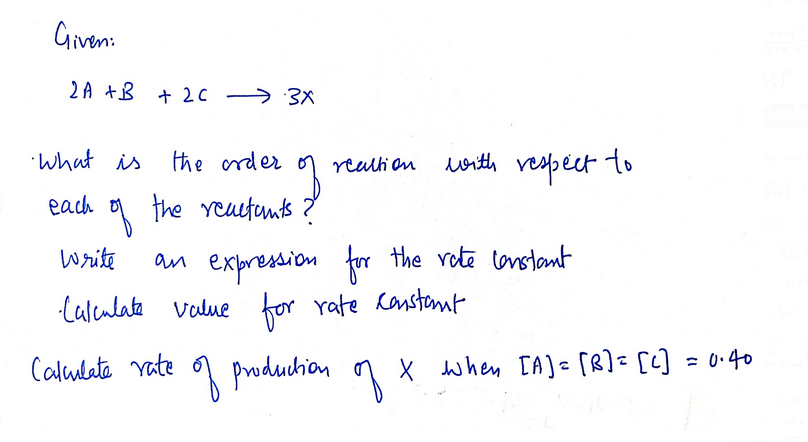 Given:
2A + B + 2C ⟶ 3X
What is the order of reaction with respect to
each of the reactants?
Write an expression for the rate constant
Calculate value for rate constant
Calculate rate of production of X when [A] = [B] = [C] = 0.40